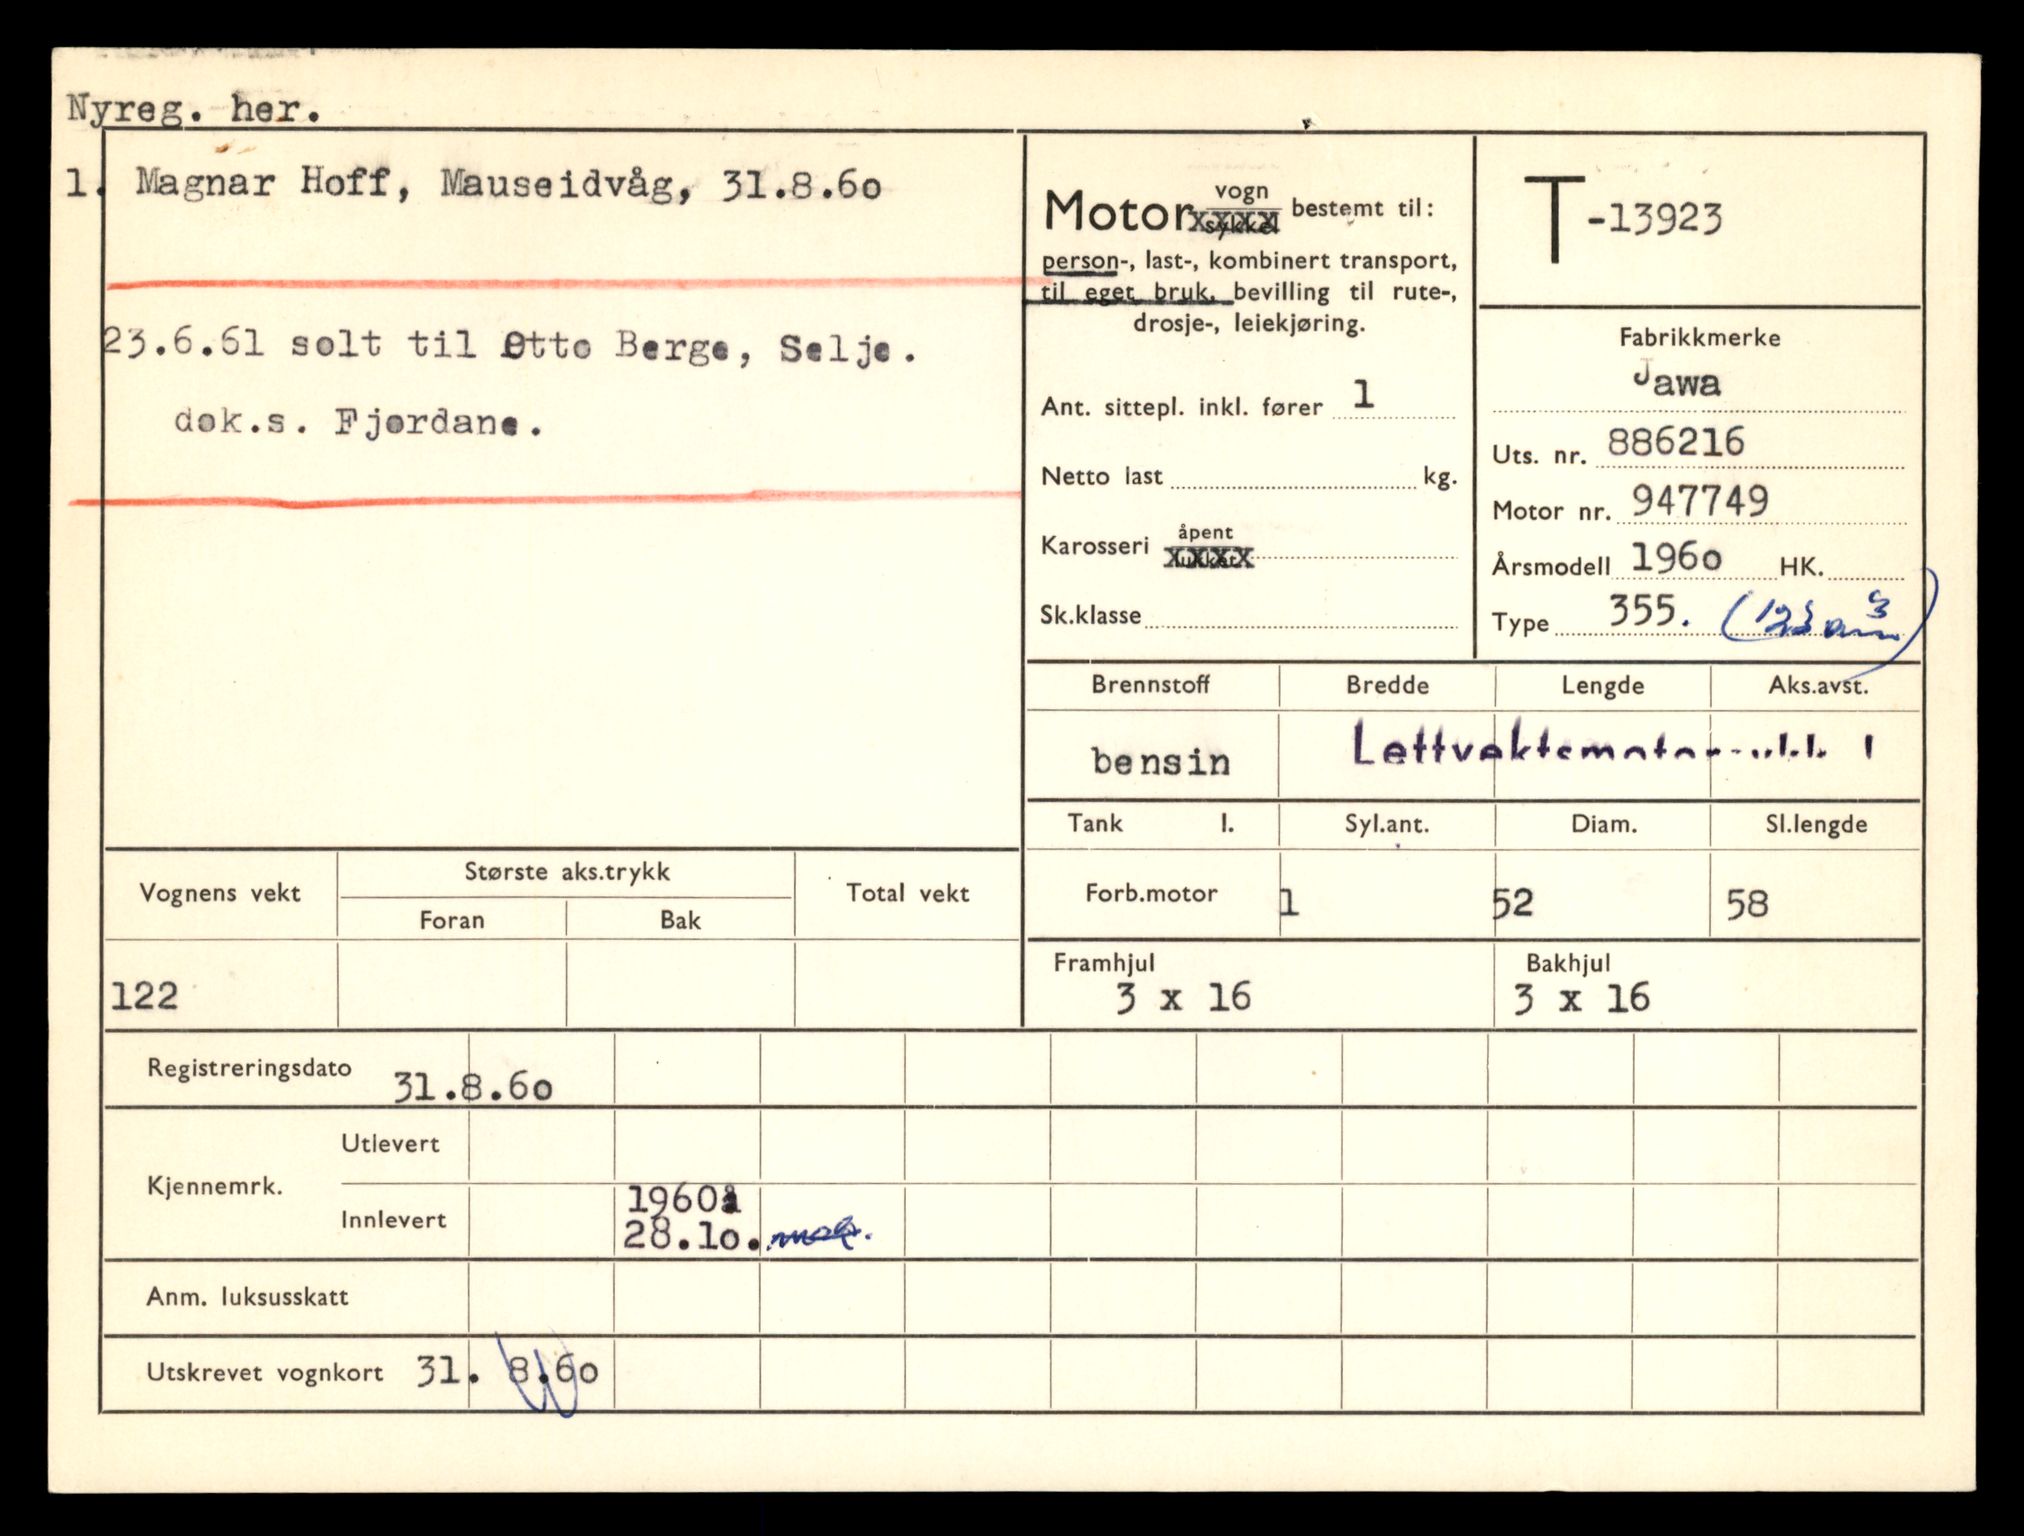 Nyreg. her.
1. Magnar Hoff, Mauseidvåg, 31.8.6o
23.6.61 solt til Otto Berge, Selje.
dok.s. Fjordane.
Motor vogn
sykkel bestemt til:
person-, last-, kombinert transport,
til eget bruk, bevilling til rute-,
drosje-, leiekjøring.
Ant. sittepl. inkl. fører 1
Netto last kg.
Karosseri åpent
lukket
Sk.klasse
T-13923
Fabrikkmerke
Jawa
Uts. nr. 886216
Motor nr. 947749
Årsmodell 196o HK.
Type 355.
Brennstoff Bredde Lengde Aks.avst.
bensin
Tank l. Syl.ant. Diam. Sl.lengde
Forb.motor 1 52 58
Framhjul Bakhjul
3 x 16 3 x 16
Vognens vekt Største aks.trykk Total vekt
Foran Bak
122
Registreringsdato 31.8.6o
Kjennemrk. Utlevert
Innlevert 1960
28.1o.
Anm. luksusskatt
Utskrevet vognkort 31. 8.6o